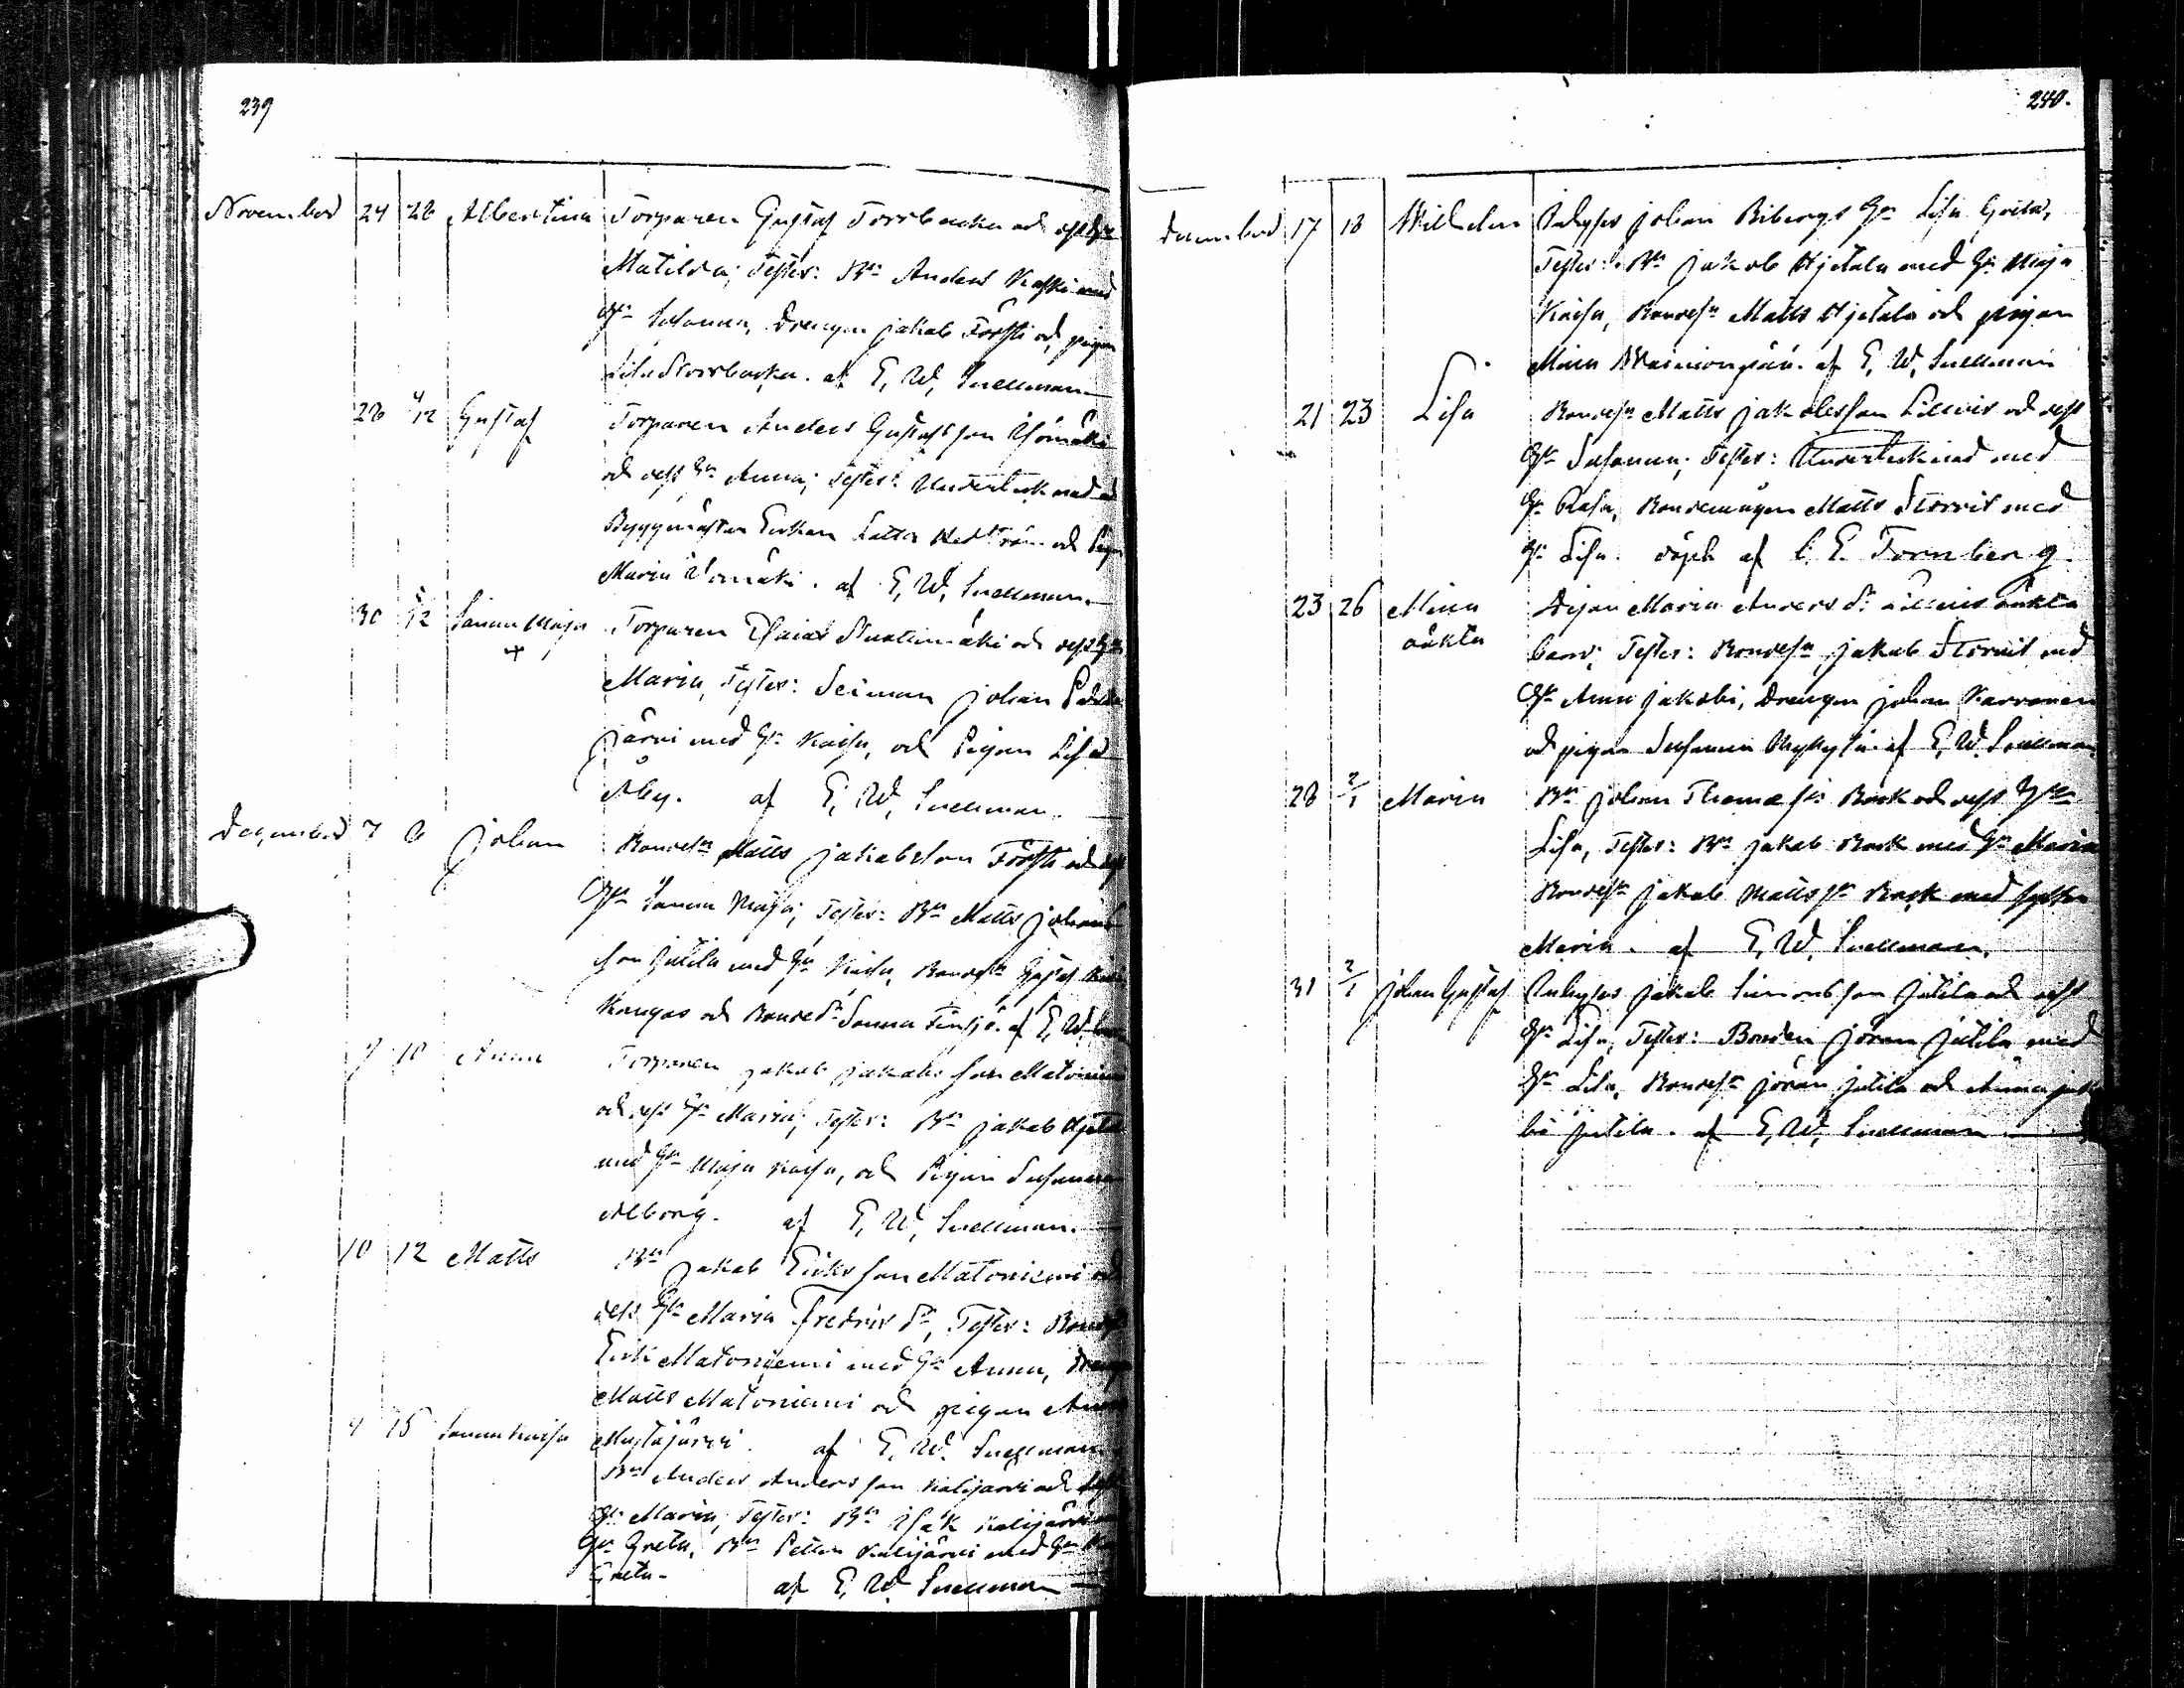 239
November 24 26 Albertina Torparen Gustaf Torrbacka och dess Hu
Matilda; Testes: Bn Anders Kaski med
Hu Susanna, Drengen Jakob Försti och pigan
Lisa Storrbacka. af E. W. Snellman
28 4/12 Gustaf Torparen Anders Gustafsson Ylömäki
och dess Hu Anna; Testes: Undertecknad och
Byggmästar Enkan Lotta Hedström och Pigan
Maria Ylömäki. af E. W. Snellman.
30 5/12 Sanna Maja Torparen Esaias mäki och dess Hu
Maria, Testes: Johan
järvi med Hu Kaisa, och Pigan Lisa
Åby. af E. W. Snellman.
December 7 8 Johan Bondesn Matts Jakobsson Försti och dess
Hu Sanna Maja; Testes: Bn Matts Johans
son Jutila med Hu Kaisa, Bondesn Gustaf
Kangas och Bonded. Sanna af E. W.
9 10 Anna Torparen Jakob Jakobsson Matoniemi
och dess Hu Maria; Testes: Bn Jakob Hjetala
med Hu Maja Kaisa, och Pigan Susanna
Alborg. af E. W. Snellman.
10 12 Matts Bn Jakob Ericksson Matoniemi och
dess Hu Maria Fredrics dr, Testes: Bondesn
Erik Matoniemi med Hu Anna, Drengen
Matts Matoniemi och pigan Anna
Mustajärvi. af E. W. Snellman
4 15 Sanna Kaisa Bn Anders Andersson Kalijärvi och dess
Hu Maria, Testes: Bn Isak Kalijärvi
Hu Greta, Bn Petter Kalijärvi med Hu
Greta. af E. W. Snellman
240.
December 17 18 Wilhelm Inhyses Johan Bibergs Hu Lisa Greta,
Testes: Bn Jakob Hjetala med Hu Maja
Kaisa, Bondesn Matts Hjetala och pigan
Mina Wainionpää. af E. W. Snellman
21 23 Lisa Bondesn Matts Jakobsson Lillvis och dess
Hu Susanna; Testes: Undertecknad med
Hu Rosa, Bondemågen Matts Storvis med
Hu Lisa. döpt af C. E. Tornberg
23 26 Mina oäkta Pigan Maria Anders dr Lillvis oäkta
barn; Testes: Bondesn Jakob Storvis med
Hu Anna Jakobi, Drengen Johan Karvonen
och pigan Susanna af E. W. Snellman
28 2/1 Maria Bn Johan Thomæ sn Rask och dess Hu
Lisa, Testes: Bn Jakob Rask med Hu Maria
Bondesn Jakob Matts sn Rask med syster
Maria. af E. W. Snellman.
31 2/1 Johan Gustaf Inhyses Jakob Simonsson Jutila och dess
Hu Lisa, Testes: Bonden Jöran Jutila med
Hu Lisa, Bondesn Jöran Jutila och Anna Jako
bi Jutila. af E. W. Snellman